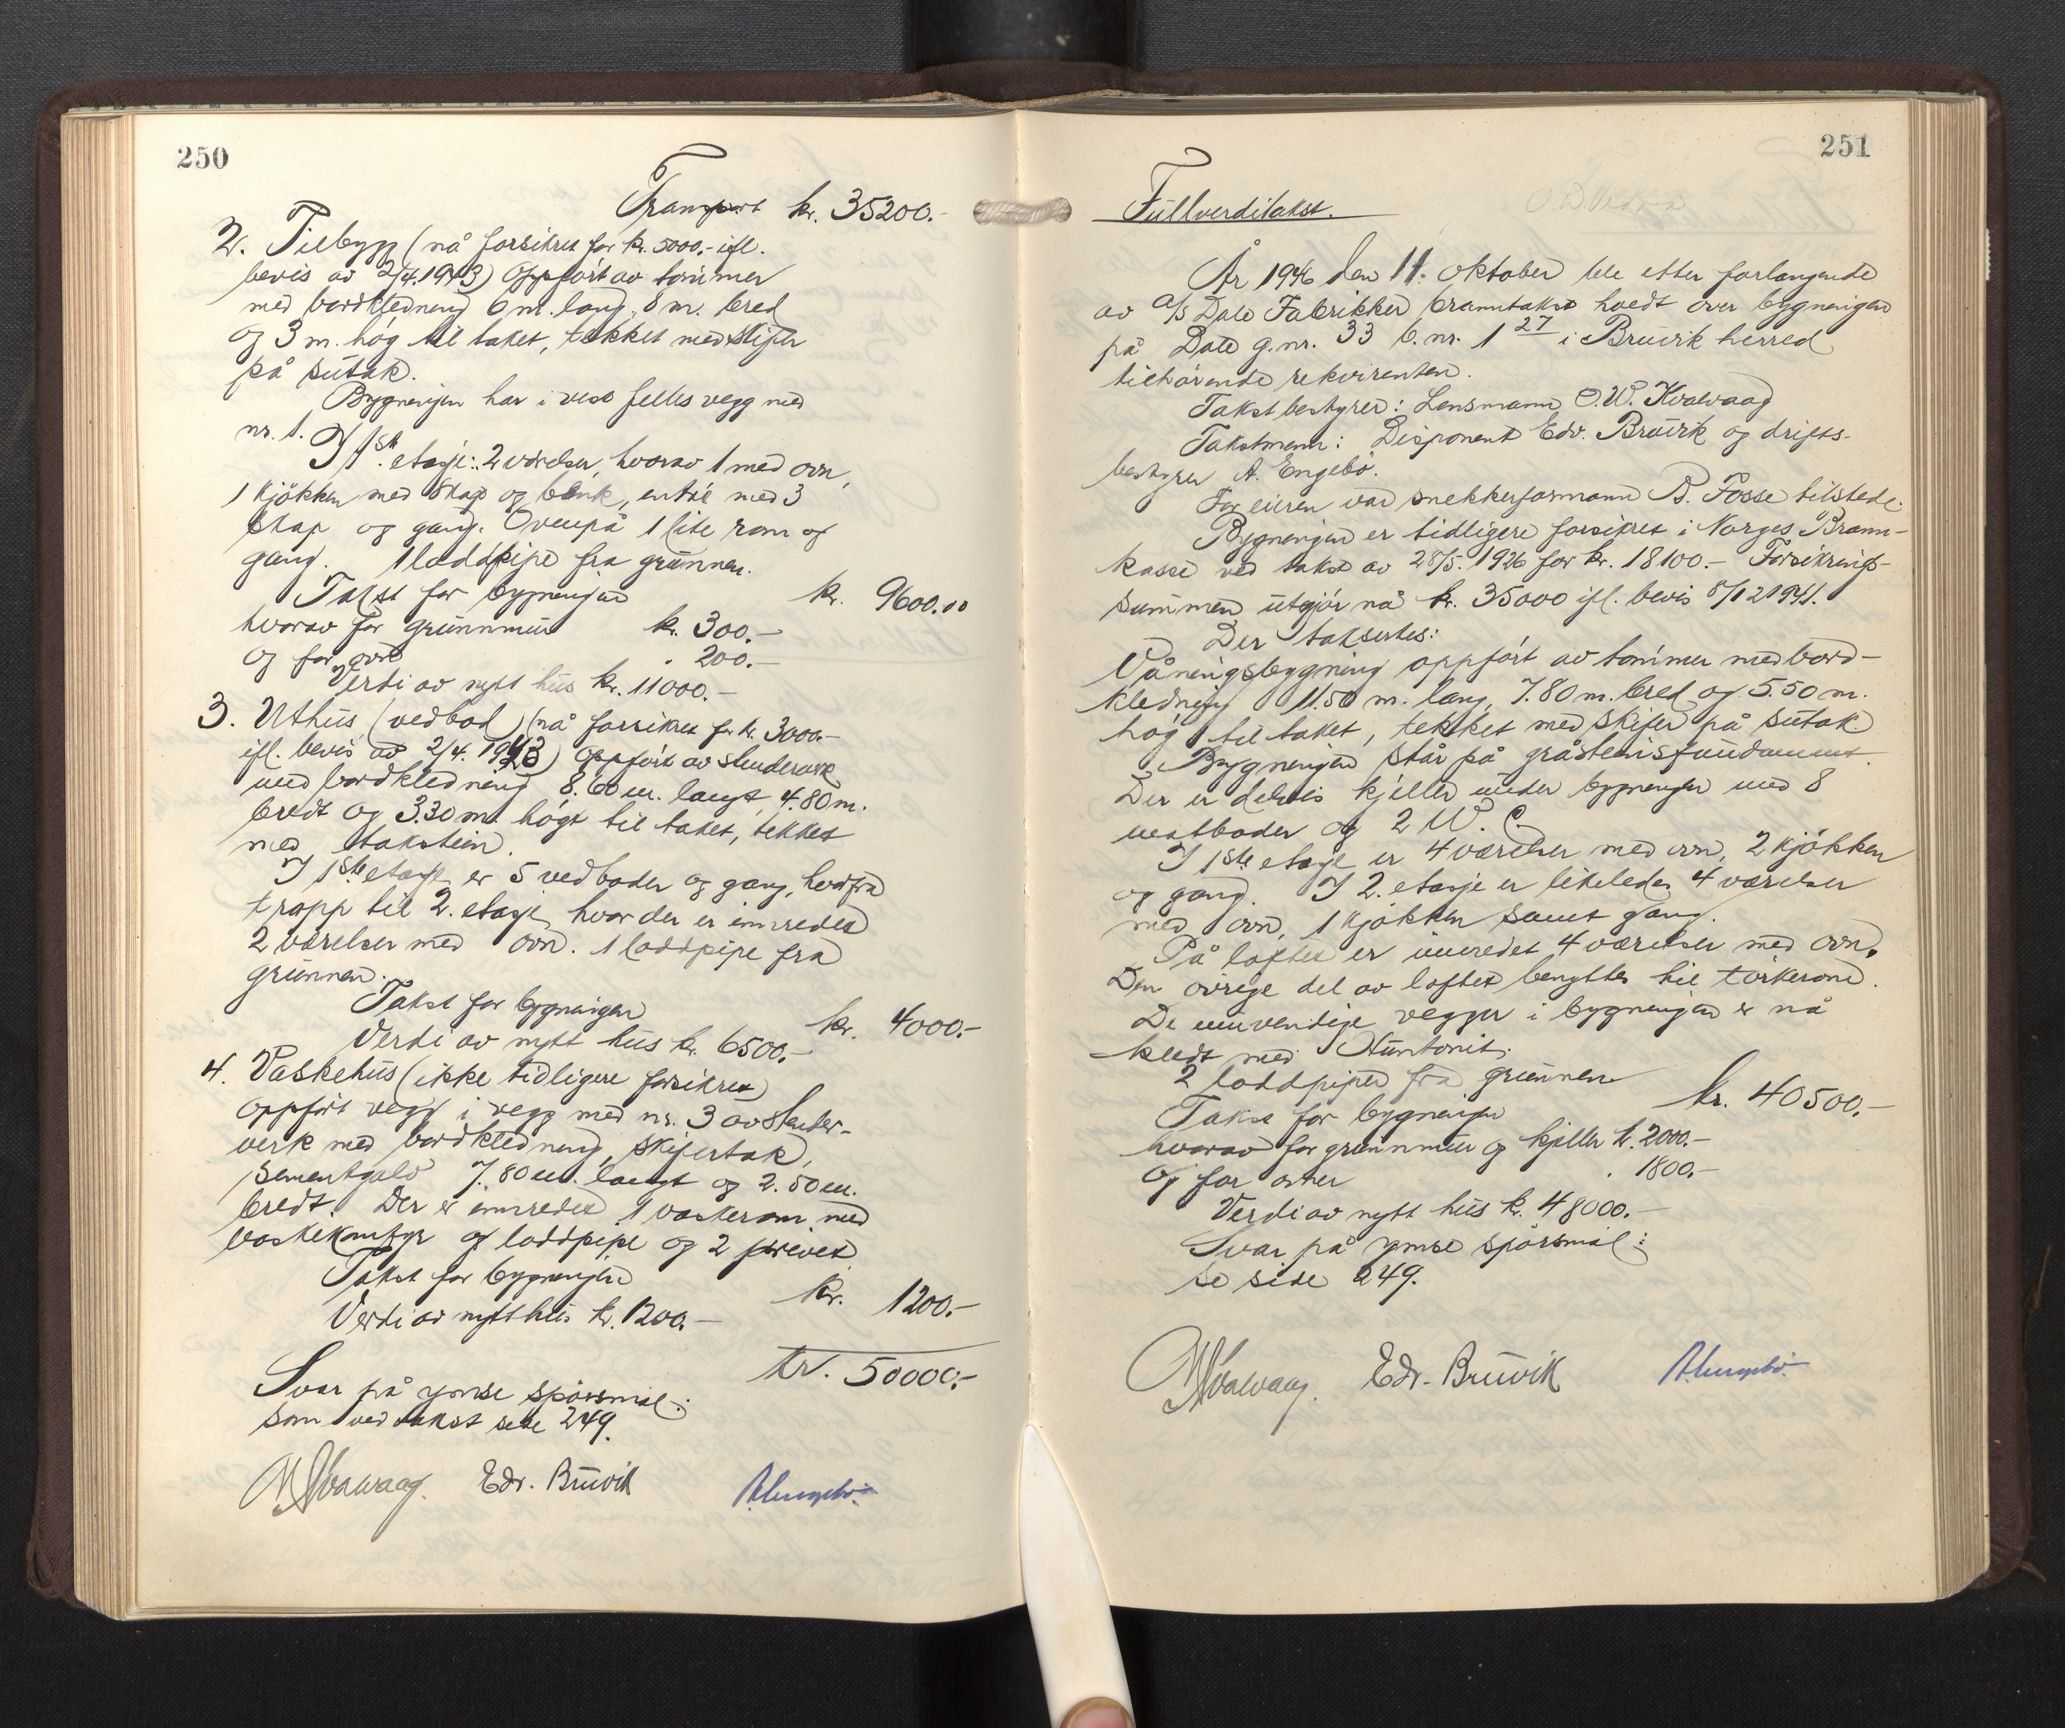 250
Transport kr. 35200.-
2. Tilbygg (nå forsikret for kr. 5000.- ifl.
bevis av 2/4.1943) Oppfört av tömmer
med bordkledning 6 m. lang, 8 m. bred
og 3 m. hög til taket, tekket med skifer
på sutak.
Bygningen har i vest felles vegg med
nr. 1.
I 1ste etasje: 2 værelser, hvorav 1 med ovn,
1 kjökken med skap og benk, entré med 3
skap og gang. Ovenpå 1 lite rom og
gang. 1 loddpipe fra grunnen.
Takst for bygningen kr. 9600.00
hvorav for grunnmur kr. 300.-
og for ovn " 200.-
Verdi av nytt hus kr. 11000.-
3. Uthus (vedbod) (nå forsikret for kr. 3000.-
ifl. bevis av 2/4. 1943) Oppfört av stenderverk
med bordkledning 8.60 m. langt, 4.80 m.
bredt og 3.30 m. högt til taket, tekket
med takstein.
I 1ste etasje er 5 vedboder og gang, hvorfra
trapp til 2. etasje, hvor der er innredet
2 værelser med ovn. 1 loddpipe fra
grunnen.
Takst for bygningen kr. 4000.-
Verdi av nytt hus kr. 6500.-
4. Vaskehus (ikke tidligere forsikret)
oppfört vegg i vegg med nr. 3 av stender-
verk med bordkledning, skifertak,
sementgolv 7.80 m. langt og 2.50 m.
bredt. Der er innredet 1 vaskerom med
vaskekomfyr og loddpipe og 2 priveter
Takst for bygningen kr. 1200.-
Verdi av nytt hus kr. 1200.-
kr. 50000.-
Svar på ymse spörsmål:
som ved takst side 249.
Kvalvaag. Edv. Bruvik A. Engebö.
251
Fullverditakst.
År 1946 den 11. oktober ble etter forlangende
av A/S Dale Fabrikker branntakst holdt over bygningen
på Dale g.nr. 33 b.nr. 1 27 i Bruvik herred
tilhörende rekvirenten.
Takstbestyrer: Lensmann O.W. Kvalvaag
Takstmenn: Disponent Edv. Bruvik og drifts-
bestyrer A. Engebö.
For eieren var snekkerformann B. Fosse tilstede.
Bygningen er tidligere forsikret i Norges Brann-
kasse ved takst av 28/5. 1926 for kr. 18100.- Forsikrings-
summen utgjör nå kr. 35000 ifl. bevis 8/12 1941.
Der taksertes:
Våningsbygning oppfört av tömmer med bord-
kledning 11.50 m. lang, 7.80 m. bred og 5.50 m.
hög til taket, tekket med skifer på sutak
Bygningen står på gråstensfundament.
Der er delvis kjeller under bygningen med 8
matboder og 2 W. C.
I 1ste etasje er 4 værelser med ovn, 2 kjökken
og gang. I 2. etasje er likeledes 4 værelser
med ovn, 1 kjökken samt gang.
På loftet er innredet 4 værelser med ovn.
Den övrige del av loftet benyttes til törkerom.
De innvendige vegger i bygningen er nå
kledt med Huntonit.
2 loddpiper fra grunnen
Takst for bygningen kr. 40500.-
hvorav for grunnmur og kjeller kr. 2000.-
og for ovner " 1800.-
Verdi av nytt hus kr. 48000.-
Svar på ymse spörsmål:
se side 249.
Kvalvaag. Edv. Bruvik A. Engebö.